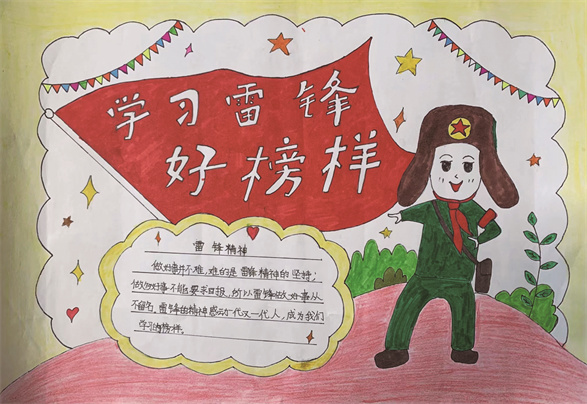 学习雷锋
好榜样
雷锋精神
做好事并不难,难的是雷锋精神的坚持;
做好事不能要求回报,所以雷锋做好事从
不留名,雷锋的精神感动一代又一代人,成为我们
学习的榜样。